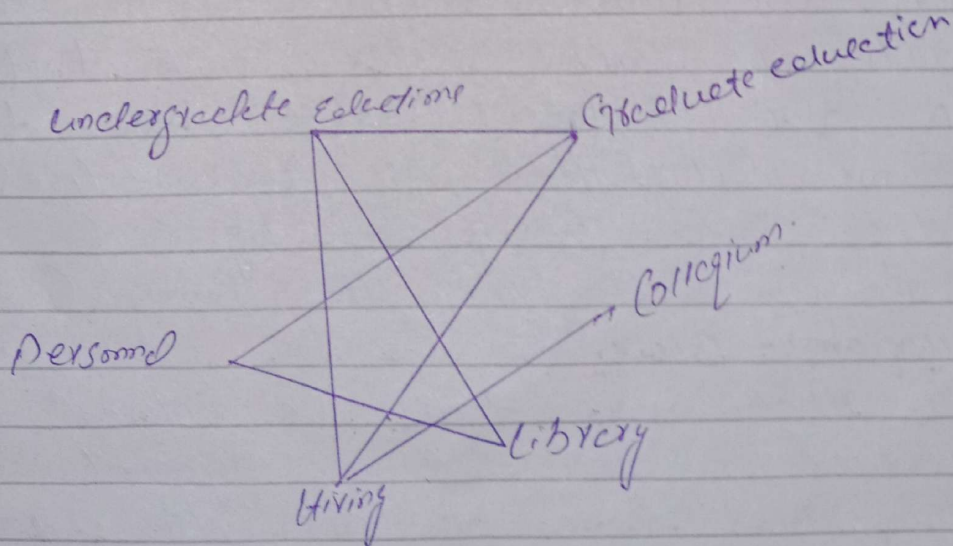 Undergraduate Educations
Graduate education
Collegium.
Personnel
Library
Hiring